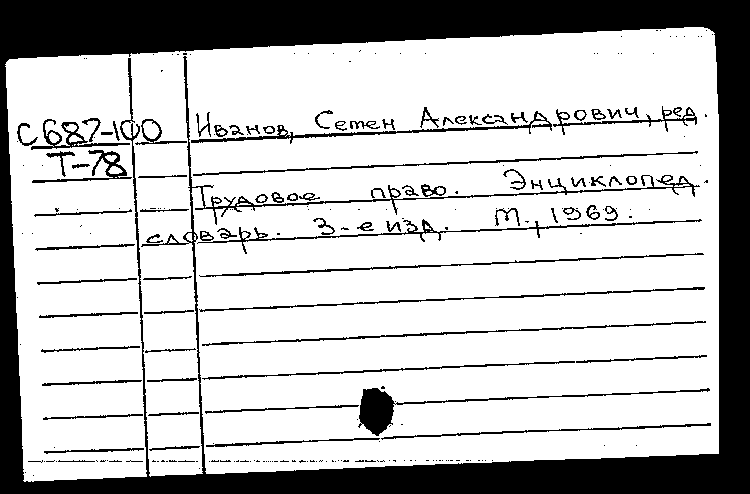 С687-100 Иванов, Семен Александрович, ред.
Т-78
Трудовое право. Энциклопед.
словарь. 3-е изд. М., 1969.